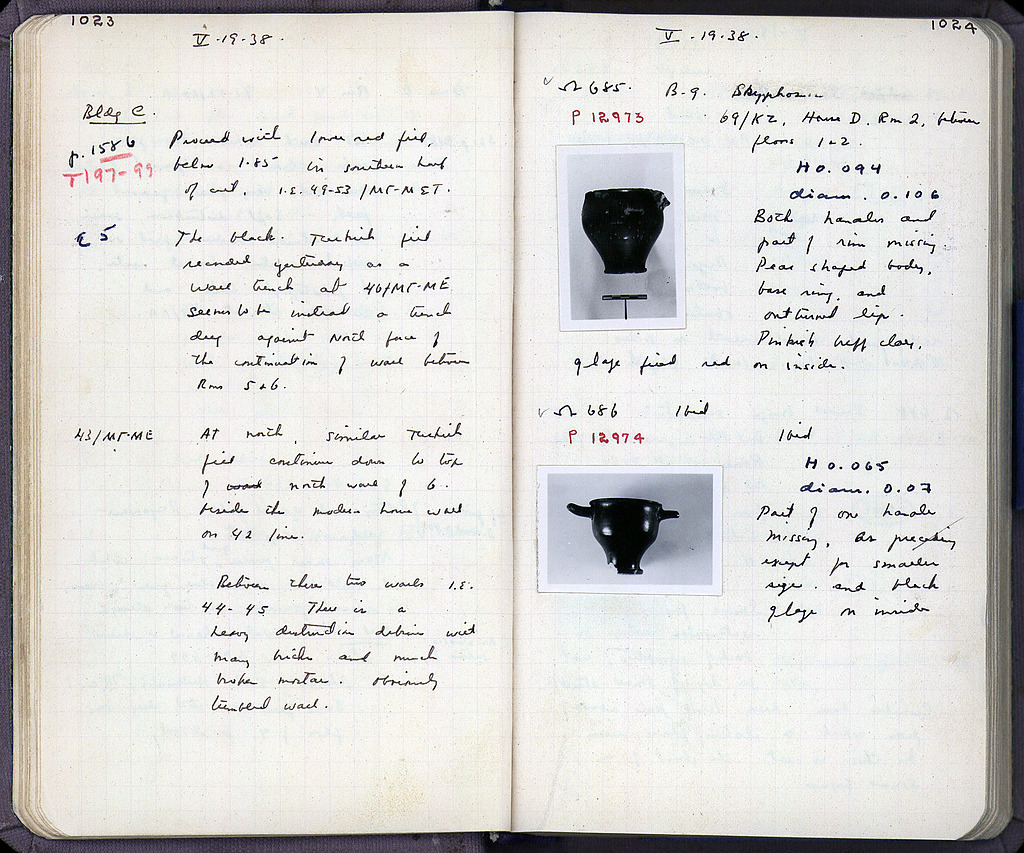 1023
V-19-38.
Bldg C.
p. 1586
T197-99
Proceed with lower red fill,
below 1.85 in southern half
of cut, i.e. 49-53/ΜΓ-ΜΣΤ.
5
The black Turkish fill
recorded yesterday as a
wall trench at 46/ΜΓ-ΜΕ
seems to be instead a trench
dug against north face of
the continuation of wall between
Rms 5+6.
43/ΜΓ-ΜΕ
At north, similar Turkish
fill continues down to top
of north wall of 6.
beside the modern house wall
on 42 line.
Between these two walls i.e.
44-45 There is a
heavy destruction debris with
many bricks and much
broken mortar. Obviously
tumbled wall.
1024
V-19-38.
Ω 685. B-g. Skyphos
P 12973
69/ΚΖ, House D. Rm 2, between
floors 1+2.
H 0.094
diam. 0.106
Both handles and
part of rim missing
Pear shaped body,
base ring, and
outturned lip.
Pinkish buff clay,
glaze fired red on inside.
Ω 686 Ibid
P 12974
Ibid
H 0.065
diam. 0.07
Part of one handle
missing, As preceding
except for smaller
size and black
glaze on inside